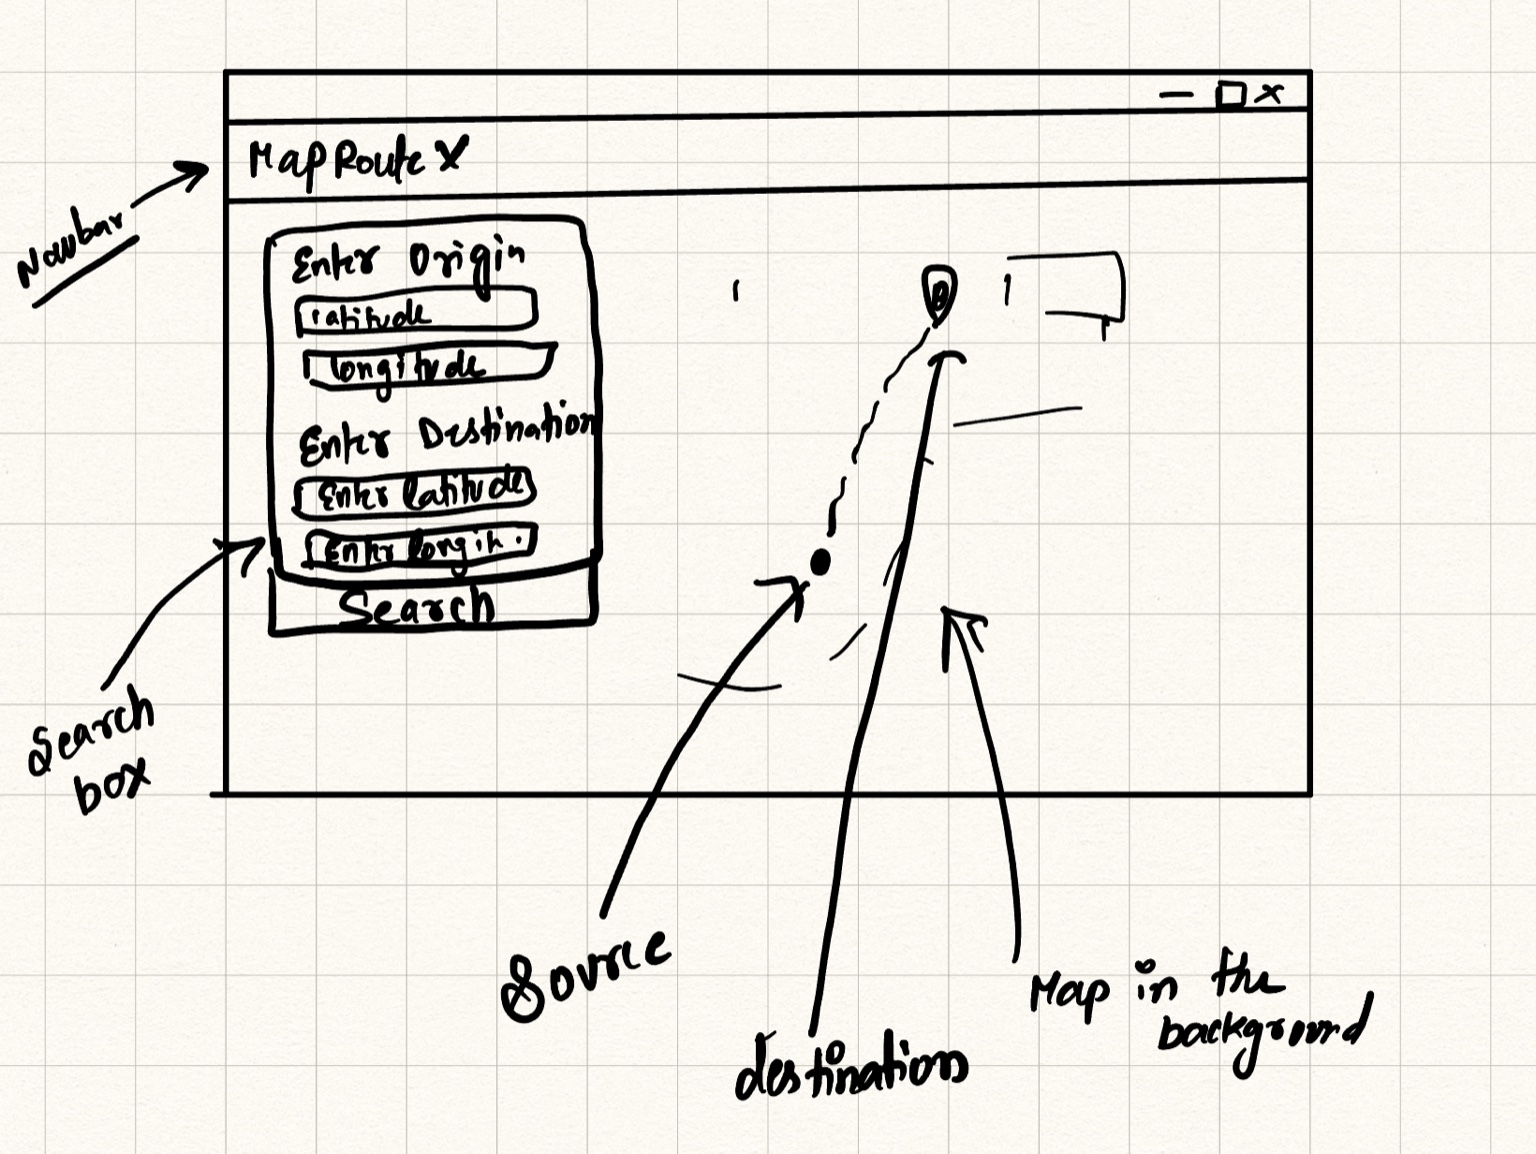 MapRoute X
Navbar
Enter Origin
latitude
longitude
Enter Destination
Enter latitude
Enter longit.
Search
Search
box
Source
destination
Map in the
background